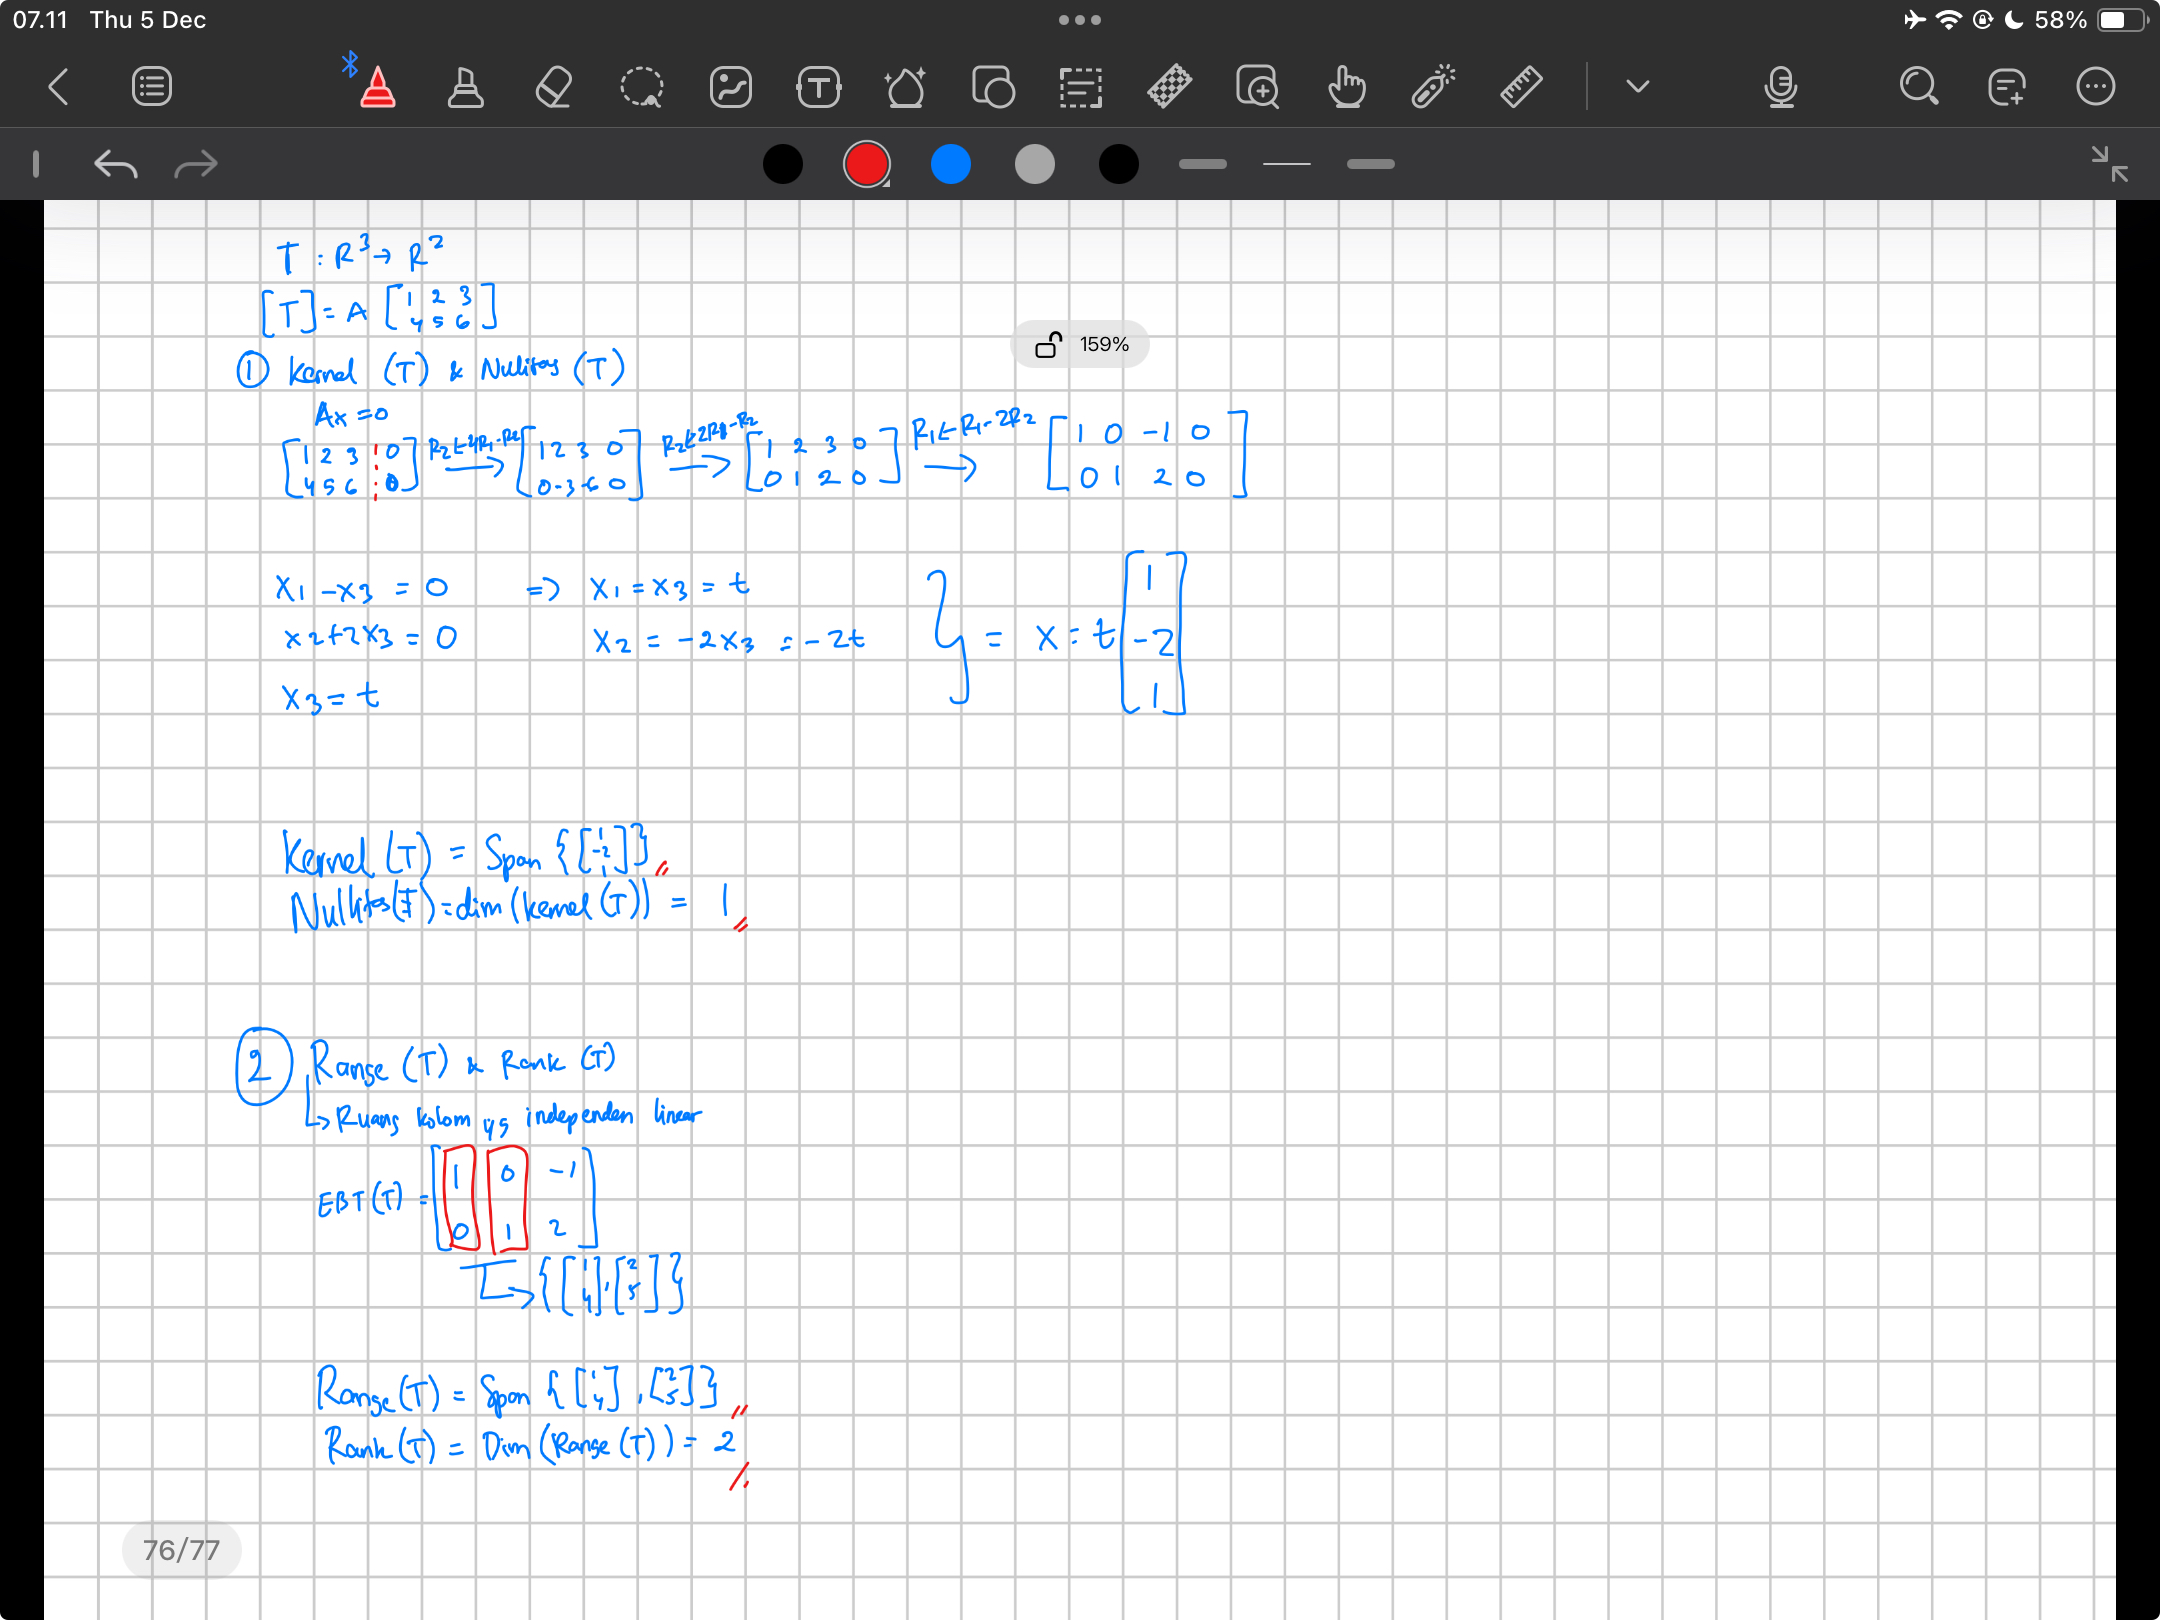 07.11 Thu 5 Dec
58%
T : R³ → R²
[T] = A [1 2 3
4 5 6]
159%
① Kernel (T) & Nulitas (T)
Ax = 0
[1 2 3 0
4 5 6 0]
[1 2 3 0
0 -3 -6 0]
[1 2 3 0
0 1 2 0]
R₁ ← R₁ - 2R₂
[1 0 -1 0
0 1 2 0]
x₁ - x₃ = 0 ⇒ x₁ = x₃ = t
x₂ + 2x₃ = 0 x₂ = -2x₃ = -2t
x₃ = t
} = x = t [1
-2
1]
Kernel (T) = Span {[1
-2
1]}
Nullitas(T) = dim (kernel (T)) = 1
② Range (T) & Rank (T)
↳ Ruang kolom yg independen linear
EBT(T) = [1 0 -1
0 1 2]
↳ {[1
4], [2
5]}
Range(T) = Span {[1
4], [2
5]}
Rank (T) = Dim (Range (T)) = 2
76/77